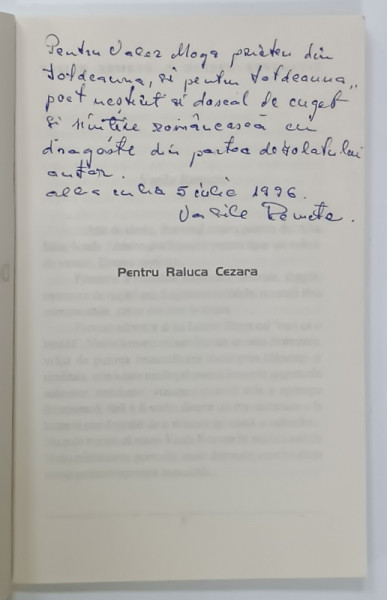 Pentru Valer Moga prieten din
totdeauna, și pentru totdeauna,
poet nesti̇̂ut și dascăl de cuget
și simțire românească cu
dragoste din partea dezolatului
autor.
alba iulia 5 iulie 1996.
Vasile
Pentru Raluca Cezara